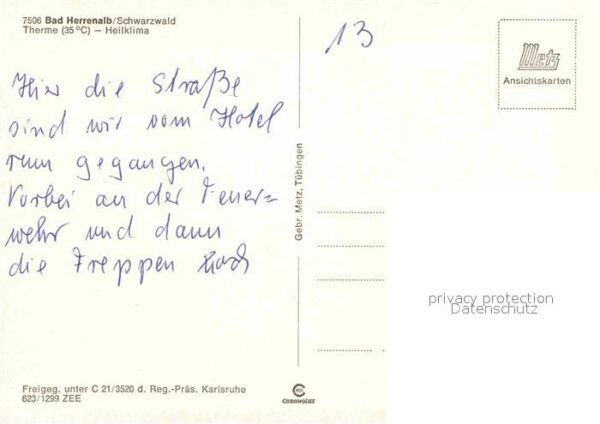 7506 Bad Herrenalb/Schwarzwald
Therme (35 °C) — Heilklima
Hier die Straße
sind wir vom Hotel
rum gegangen.
Vorbei an der Feuer=
wehr und dann
die Treppen hoch
13
Metz
Ansichtskarten
Gebr. Metz, Tübingen
privacy protection
Datenschutz
Freigeg. unter C 21/3520 d. Reg.-Präs. Karlsruhe
623/1299 ZEE
CHROMOLUX